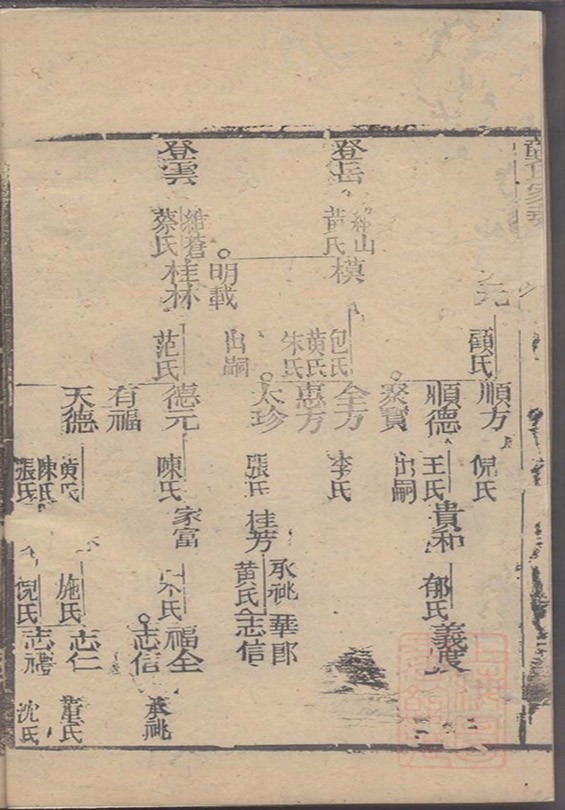 元
顧氏
順方
倪氏
順德
王氏
貴和
郁氏
聚寶
出嗣
登岳
黃氏
模
包氏
黃氏
朱氏
全方
李氏
惠方
太珍
張氏
桂芳
黃氏
承祧
華郎
志信
明載
出嗣
登雲
蔡氏
桂林
范氏
德元
陳氏
家富
宋氏
福全
志信
承祧
有福
天德
黃氏
陳氏
張氏
施氏
倪氏
志仁
董氏
志禮
沈氏